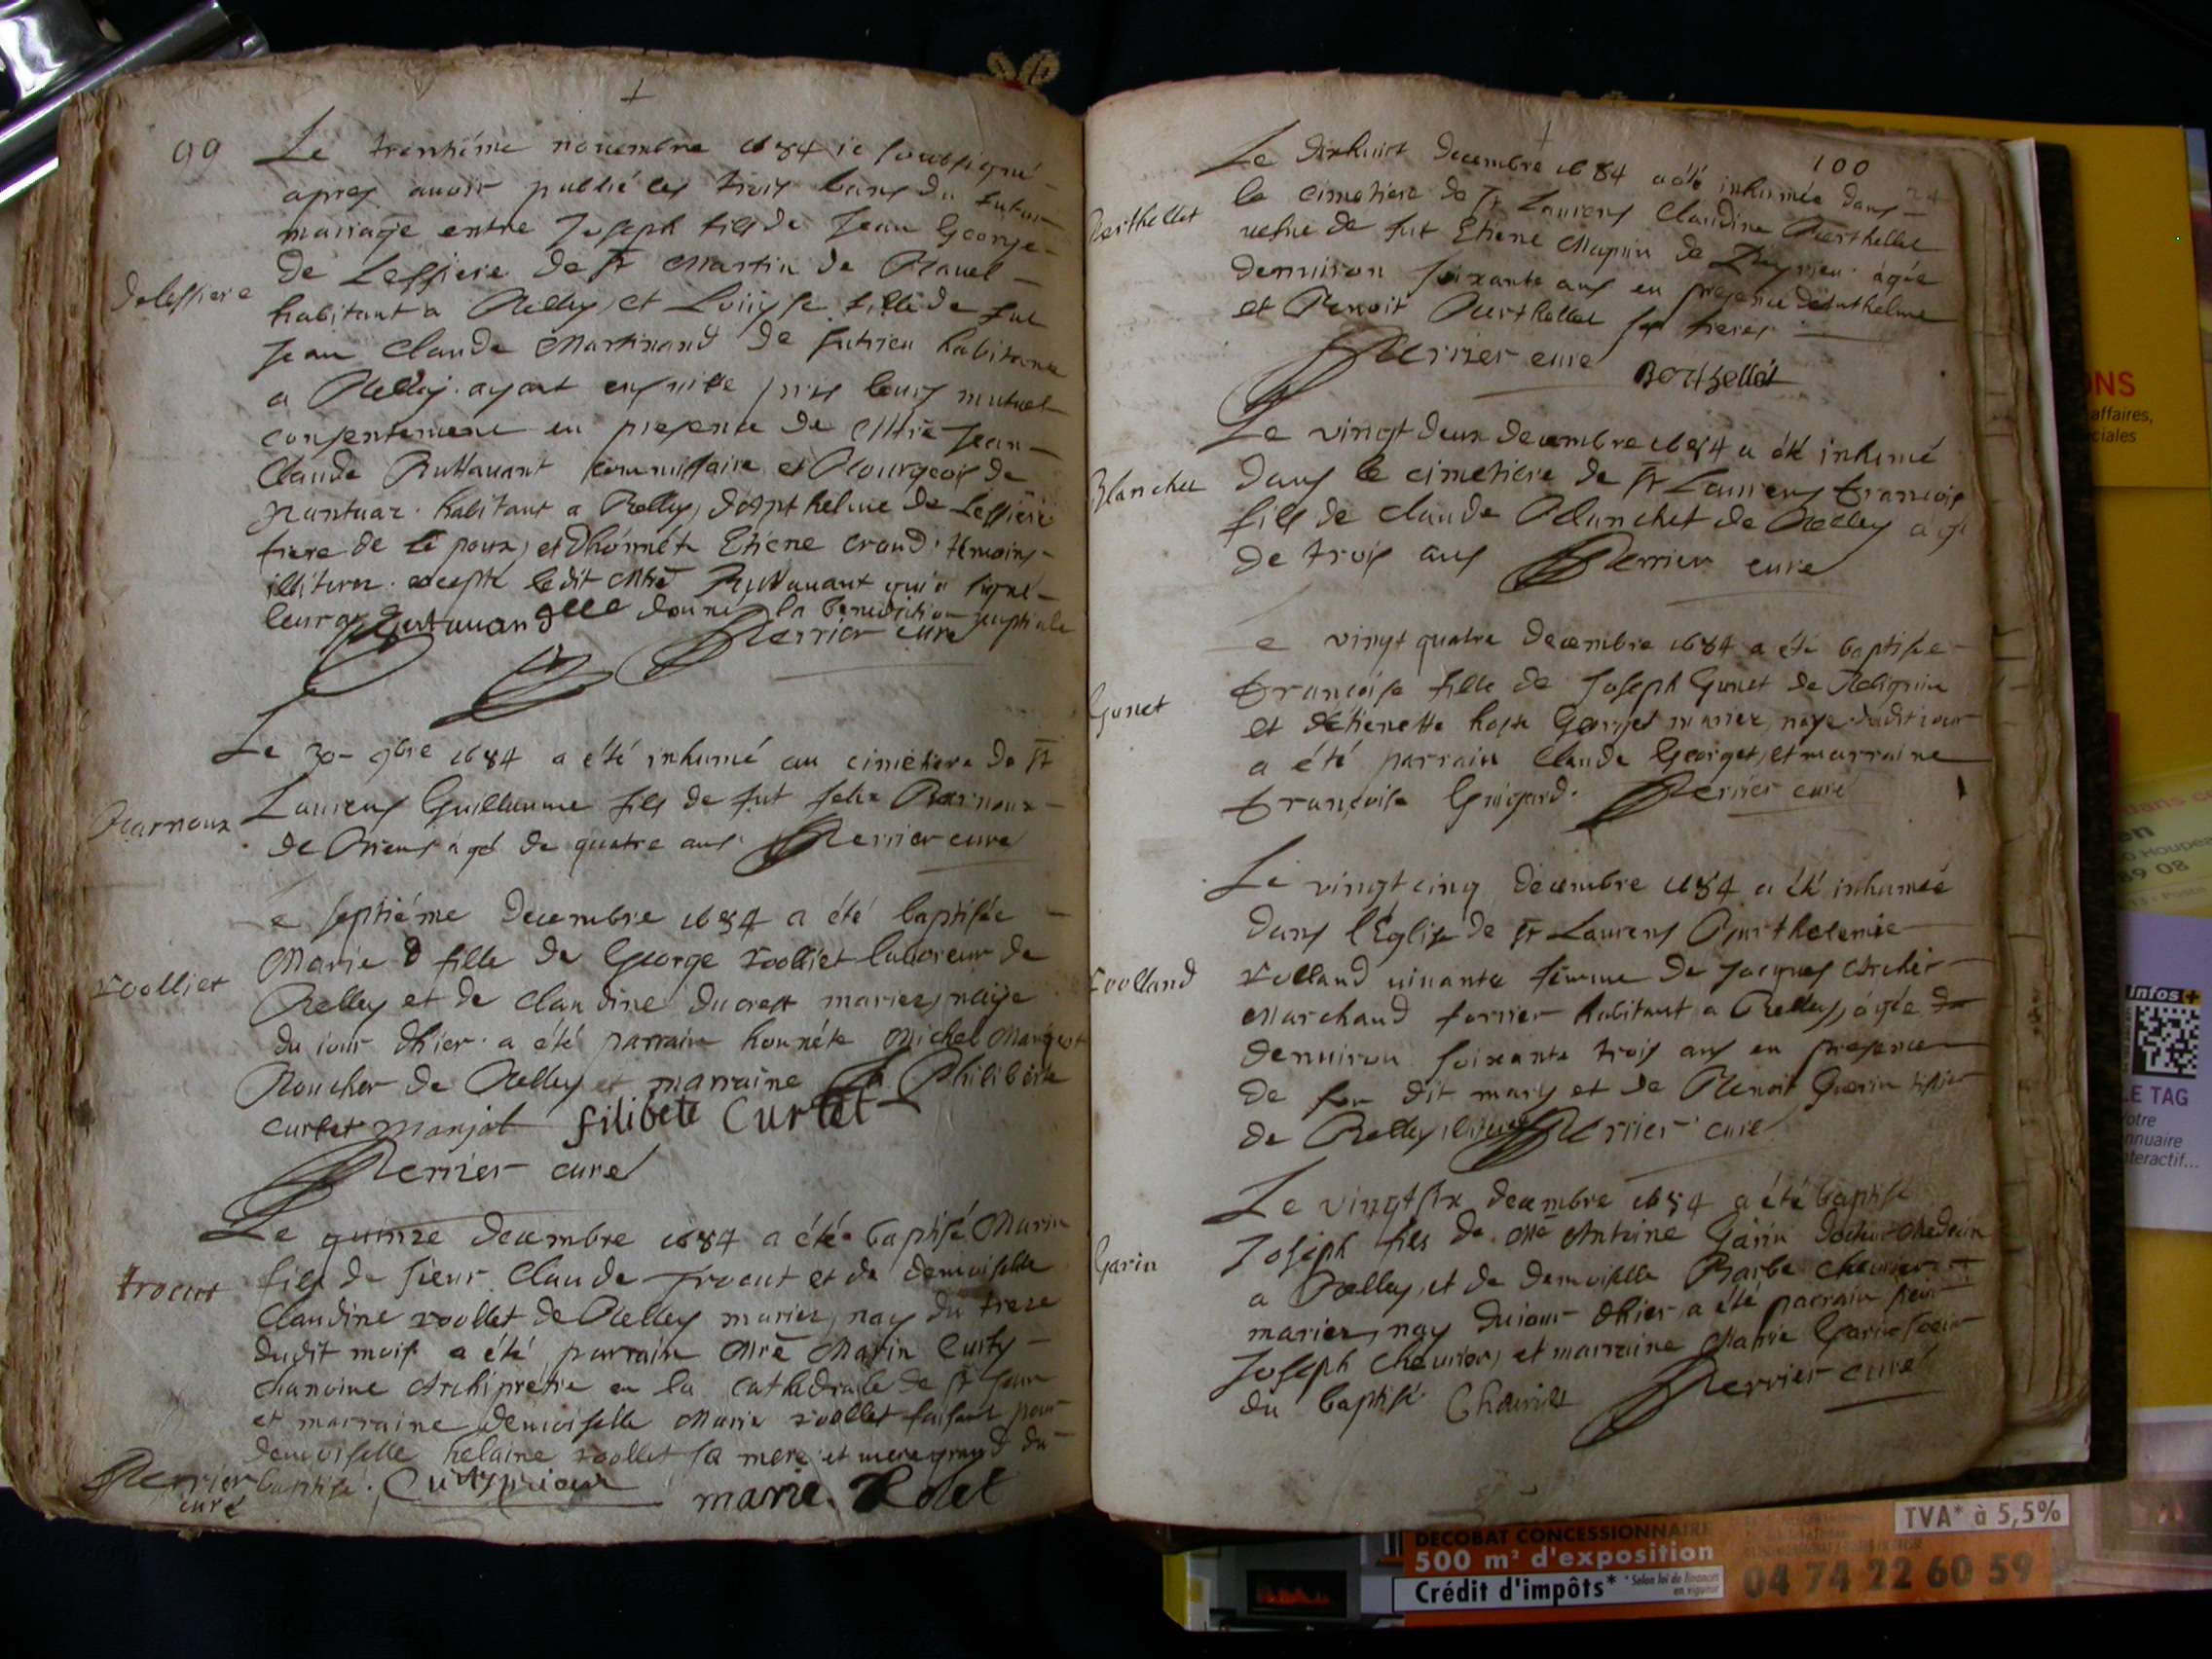 99
Le trentiéme nouembre 1684 ie soubsigné
apres auoir publié les trois bans du futur
mariage entre Joseph fils de Jean George
de Lessiere de St Martin de Bauel
habitant a Belley, et Louyse fille de fut
Jean Claude Martinand de Cutrieu habitante
a Belley. ayant ensuitte pris leurs mutuel
consentement en presence de Mtre Jean
Claude Ruttauant commissaire et Bourgeois de
habitant a Belley, dApthelme de Lessiere
frere de le poux, et dhonnéte Etiene Crand. témoins
illiteres. excepté ledit Mtre Ruttauant qui a signé
leur ay donné la benediction nuptiale
Perrier curé
delessiere
Le 30 9bre 1684 a été inhumé au cimetiere de St
Laurens Guillaume fils de fut felix Barnoux
de Briens àgé de quatre ans. Perrier curé
Barnoux
e septiéme decembre 1684 a été baptisée
Marie fille de George roolliet laboreur de
Belley et de Claudine ducrest mariez, naÿe
du iour dhier. a été parrain honnéte Michel Manjot
Boucher de Belley et marraine Philiberte
Curtet manjot filibete Curtet
Perrier curé
roolliet
Le quinze decembre 1684 a été baptisé Marin
fils de sieur Claude trocut et de demoiselle
Claudine roollet de Belley mariez, nay du treze
dudit mois a été parrain Mre Marin Cuity
chanoine Archiprétre en la cathedrale de St Jean
et marraine demoiselle Marie roollet faisant pour
demoiselle helaine roollet sa mere et mere grand du
baptisé. Cuity prieur marie Rolet
Perrier
curé
trocut
100
24
Le dixhuict decembre 1684 a été inhumée dans
le cimetiere de St Laurens Claudine Berthellet
uefue de fut Etiene Mapin de agée
denuiron soixante ans en presence dAnthelme
et Benoit Berthellet ses freres
Perrier curé Berthellet
Berthellet
Le vingt deux decembre 1684 a été inhumé
dans le cimetiere de St Laurens françois
fils de Claude Blanchet de Belley agé
de trois ans Perrier curé
Blanchet
e vingt quatre decembre 1684 a été baptisée
françoise fille de Joseph Gunet de Bolignin
et détienette Georget mariez, naye dudit iour
a été parrain Claude Georget, et marraine
françoise Guigard. Perrier curé
Gunet
Le vingt cinq decembre 1684 a été inhumée
dans l'Eglise de St Laurens Barthelemie
rolland uiuante femme de Jacques Archer
Marchand forrier habitant a Belley, àgée de
denuiron soixante trois ans en presence
de son dit mary et de Benoit Guerin tissier
de Belley Perrier curé
roolland
Le vingtsix decembre 1684 a été baptisé
Joseph fils de Mre Antoine Garin docteur Medecin
a Belley, et de demoiselle Barbe Cheurier
mariez, nay du iour dhier, a été parrain sieur
Joseph Cheurier, et marraine Marie Garin soeur
du baptisé. Cheurier Perrier curé
Garin
ONS
affaires,
ciales
89 08
Infos+
LE TAG
otre
nnuaire
nteractif...
DECOBAT CONCESSIONNAIRE
500 m² d'exposition
Crédit d'impôts*
* Selon loi de finances
en vigueur
TVA* à 5,5%
04 74 22 60 59